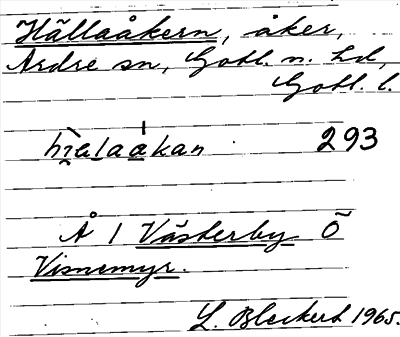 Hällaåkern, åker,
Ardre sn, Gotl. n. hd,
Gotl. l.
hi̯àlaákan 293
Å 1 Västerby Ö
Visnemyr.
L. Bleckert 1965.